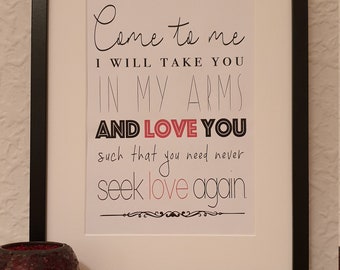 Come to me
I WILL TAKE YOU
IN MY ARMS
AND LOVE YOU
such that you need never
seek love again.